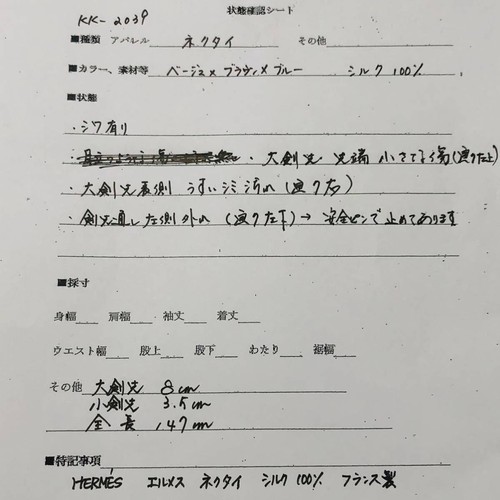 KK-2039
状態確認シート
■種類 アパレル ネクタイ その他
■カラー、素材等 ベージュ×ブラウン×ブルー シルク 100%
■状態
・シワ有り
・大剣先 先端 小さな傷(画像左上)
・大剣先表側 うすいシミ汚れ(画像右)
・剣先通し左側外れ (画像左下)→安全ピンで止めてあります
■採寸
身幅 肩幅 袖丈 着丈
ウエスト幅 股上 股下 わたり 裾幅
その他 大剣先 8cm
小剣先 3.5cm
全長 147cm
■特記事項
HERMÈS エルメス ネクタイ シルク100% フランス製